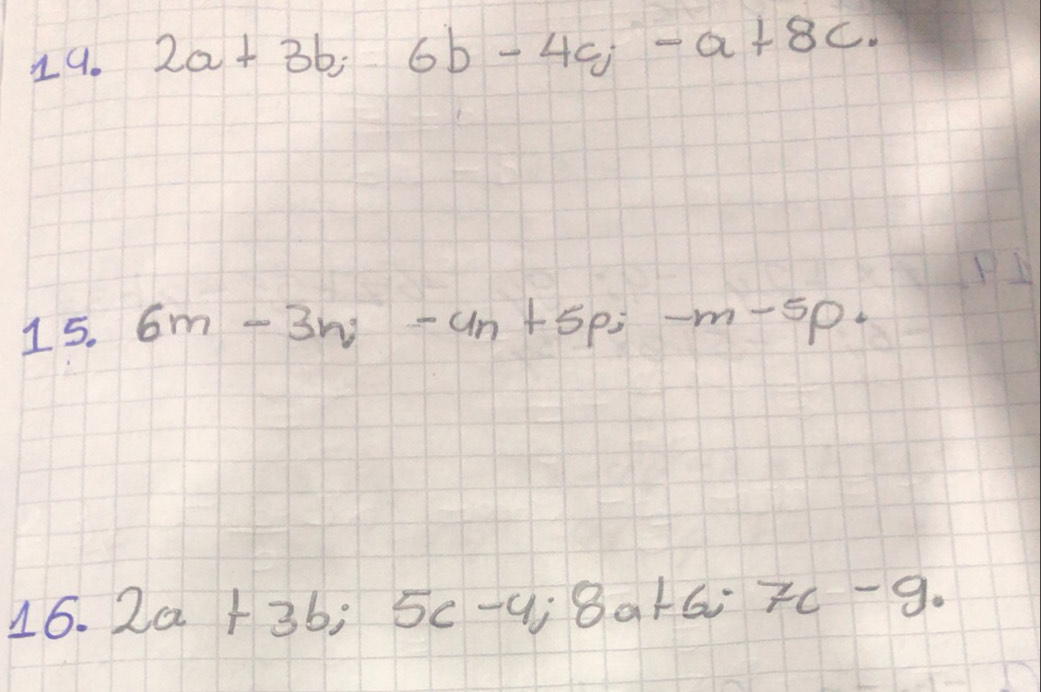 14. 2a + 3b; 6b - 4c; -a + 8c.
15. 6m - 3n; -4n + 5p; -m - 5p.
16. 2a + 3b; 5c - 4; 8a + 6; 7c - 9.